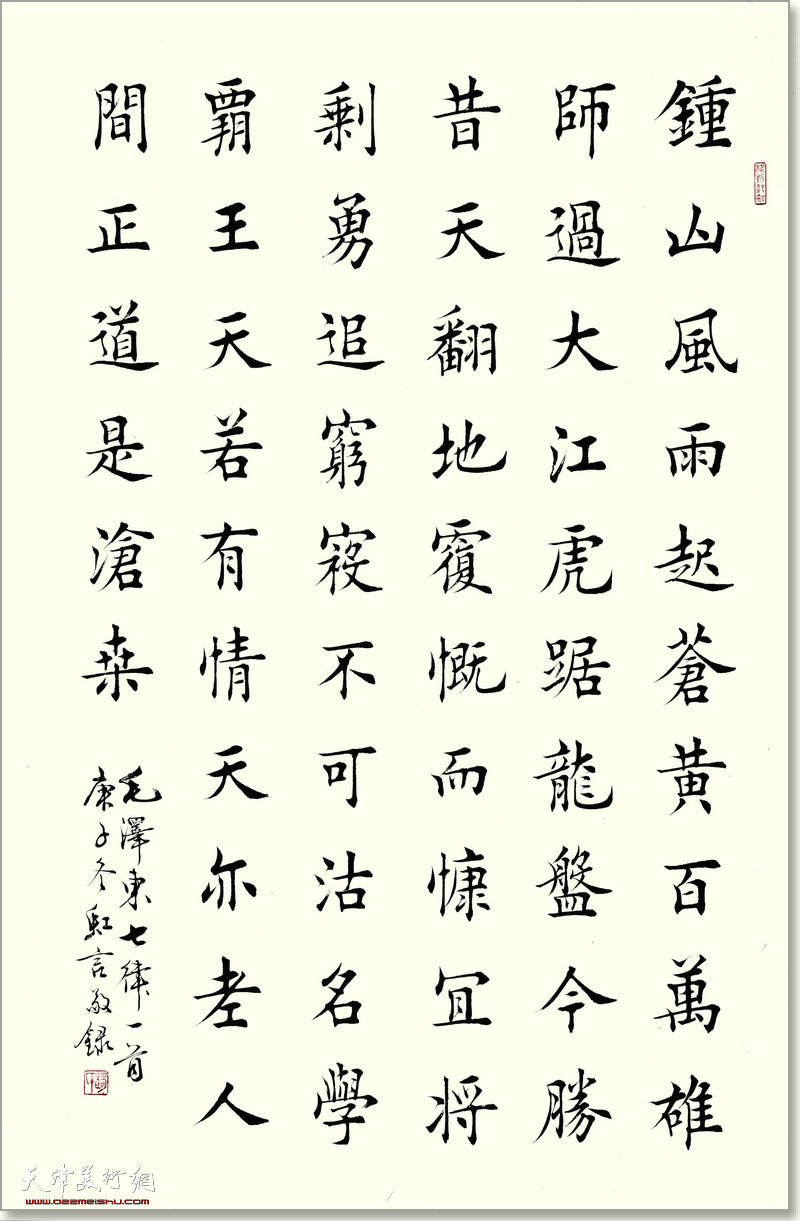 鍾山風雨起蒼黄百萬雄
師過大江虎踞龍盤今勝
昔天翻地覆慨而慷宜将
剩勇追窮寇不可沽名學
覇王天若有情天亦老人
間正道是滄桒
毛澤東七律一首
庚子冬虹言敬録
天津美術網
www.022meishu.com